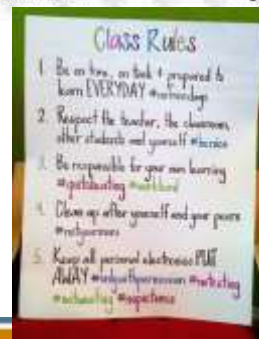 Class Rules
1 Be on time, on task & prepared to
learn EVERYDAY
2. Respect the teacher, the classroom,
other students and yourself #benice
3. Be responsible for your own learning
4. Clean up after yourself and your peers
#notyourmom
5. Keep all personal electronics PUT
AWAY #onlywithpermission #notexting